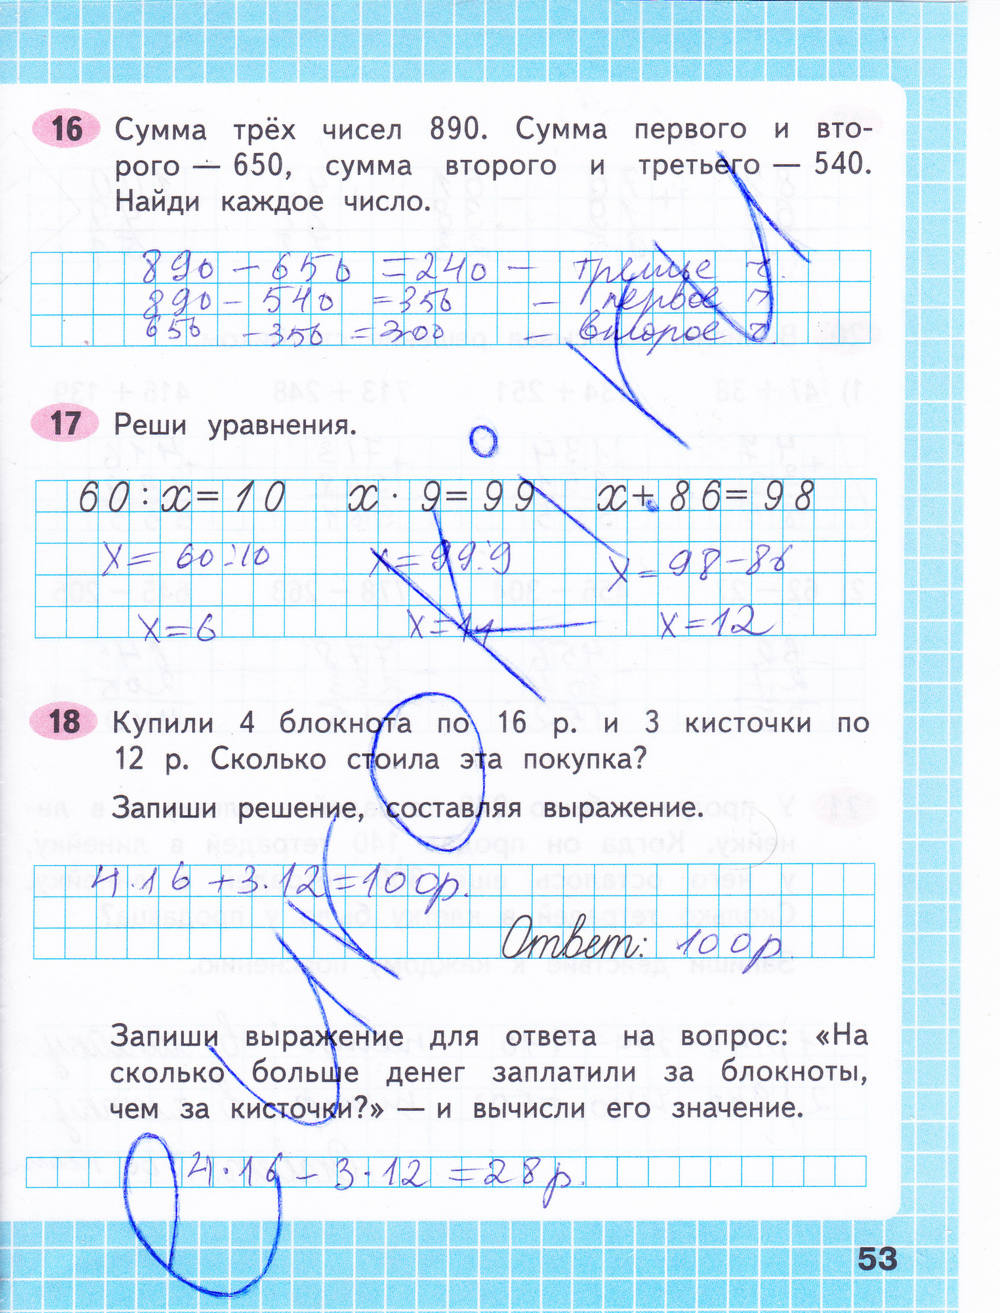 16 Сумма трёх чисел 890. Сумма первого и вто-
рого — 650, сумма второго и третьего — 540.
Найди каждое число.
890 – 650 = 240 – третье ч.
890 – 540 = 350 – первое ч
650 – 350 = 300 – второе ч.
17 Реши уравнения.
60 : x = 10 x · 9 = 99 x + 86 = 98
x = 60:10 x = 99:9 x = 98–86
x = 6 x = 11 x = 12
18 Купили 4 блокнота по 16 р. и 3 кисточки по
12 р. Сколько стоила эта покупка?
Запиши решение, составляя выражение.
4·16 + 3·12 = 100р.
Ответ: 100р
Запиши выражение для ответа на вопрос: «На
сколько больше денег заплатили за блокноты,
чем за кисточки?» — и вычисли его значение.
4·16 – 3·12 = 28р.
53